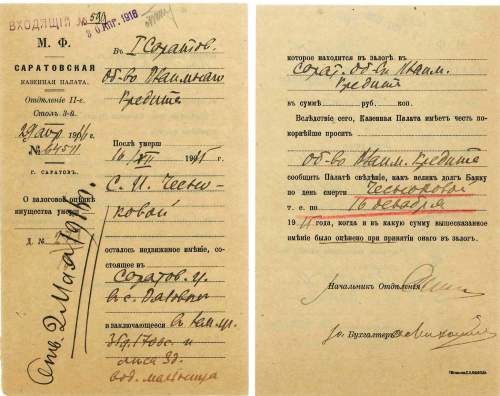 ВХОДЯЩІЙ № 590
30 АПР. 1916
М. Ф.
САРАТОВСКАЯ
КАЗЕННАЯ ПАЛАТА.
Отдѣленіе II-е.
Столъ 3-й.
29 апр 1916 г.
№ 64511
Г. САРАТОВЪ.
О залоговой оцѣнкѣ
имущества умер.
Д. №
Отв. 2 Мая 1916 г.
Въ I Саратов.
об-во Взаимнаго
Кредита
Послѣ умерш
16/XII 1915 г.
С. И. Чесно
ковой
осталось недвижимое имѣніе, со-
стоящее въ
Саратов. у.
в с.
и заключающееся въ
и
вод. мельница
которое находится въ залогѣ въ
Сарат. об-вѣ Взаим.
Кредита
въ суммѣ руб. коп.
Вслѣдствіе сего, Казенная Палата имѣетъ честь по-
корнѣйше просить
об-во Взаим. Кредита
сообщить Палатѣ свѣдѣніе, какъ великъ долгъ Банку
по день смерти Чесноковой
т. е. по 16 декабря
19 года, когда и въ какую сумму вышесказанное
имѣніе было оцѣнено при принятіи онаго въ залогъ.
Начальникъ Отдѣленія
Бухгалтеръ